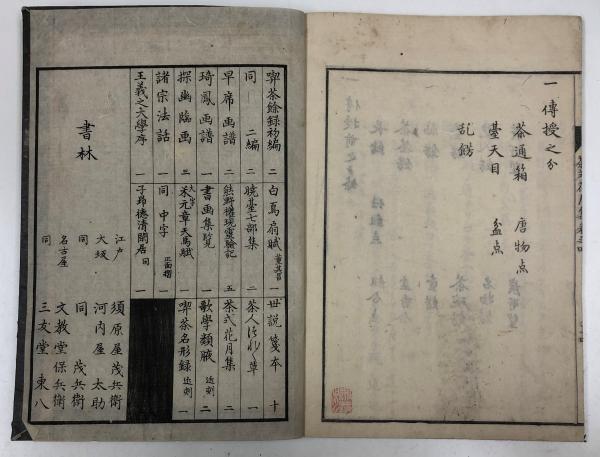 一 傳授之分
茶通箱 唐物点
臺天目 盆点
乱餝
喫茶餘録初編 二
同 二編 二
早席画譜 二
琦鳳画譜 一
探幽臨画 三
諸宗法話 一
王羲之大學序 一
白蔦扇賦 董其昌 一
暁臺七部集 二
熊野権現靈驗記 五
書画集覧 一
米元章天馬賦 大字 一
同 中字 正面摺 一
子昻德清閑居 同 一
世説箋本 十
茶人 草 一
茶式花月集 二
歌學類腋 近刻 二
喫茶名形録 近刻 一
書林
江戸 須原屋茂兵衛
大坂 河内屋太助
同 同 茂兵衛
名古屋 文教堂保兵衛
同 三友堂東八